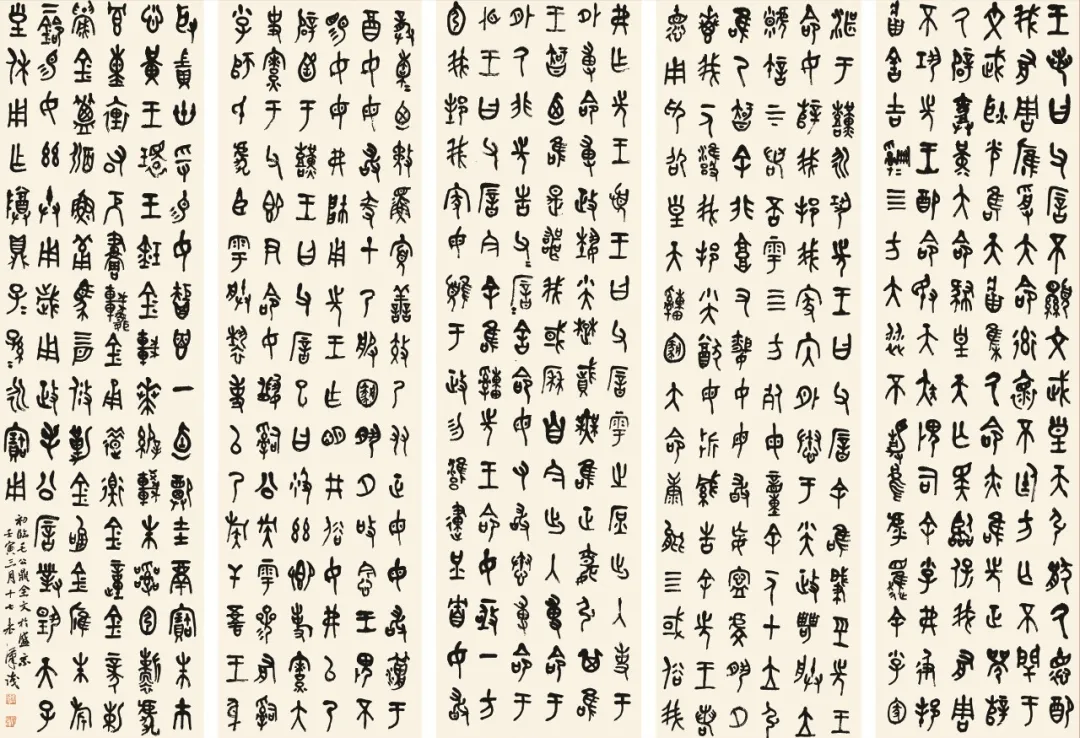 王若曰父厝不顯文武皇天引猒氒德配
我有周膺受大命率懷不廷方亡不閈于
文武耿光唯天將集氒命亦唯先正襄辥
氒辟勞勤大命肆皇天亡斁臨保我有周
不鞏先王配命敃天疾畏司余小子弗彶邦
將曷吉四方大縱不靜烏虖懼余小子圂
湛于艱永鞏先王王曰父厝余唯肇經先王
命命女辥我邦我家內外惷于小大政甹朕立
虩許上下若否雩四方死毋童余一人在立引
唯乃智余非庸又昏女毋敢妄寧虔夙夕
惠我一人雍我邦小大猷毋折緘告余先王若
德用仰卲皇天申恪大命康能四或俗我
弗乍先王憂王曰父厝雩之庶出入事于
外尃命尃政藝小大楚賦無唯正昏引其唯
王智廼唯是喪我或歷自今出入尃命于
外氒非先告父厝父厝舍命毋又敢惷尃命于
外王曰父厝今余唯申先王命命女亟一方
圂我邦我家母顀于政勿雍律庶人貯母敢
龔橐龔橐廼侮鰥寡善效乃友正母敢湎于
酒女母敢墜在乃服恪夙夕敬念王畏不
賜女母弗帥用先王乍明井俗女弗以乃
辟圅于艱王曰父厝已曰及茲卿事寮大
史寮于父即尹命女攝司公族雩參有司
小子師氏虎臣雩朕褻事以乃族干吾王身
取專卅寽賜女秬鬯一卣祼圭瓚寶朱巿
悤黃玉環玉瑹金車賁緙較朱鞹圅靳虎
冟熏裏右厄畫轉畫輴金甬錯衡金踵金豙約
盛金簟笰魚箙馬四匹攸勒金噭金膺朱旂
二鈴賜女茲关用歲用政毛公厝對揚天子
皇休用乍尊鼎子子孫孫永寶用
初臨毛公鼎全文於盛京
壬寅三月十七